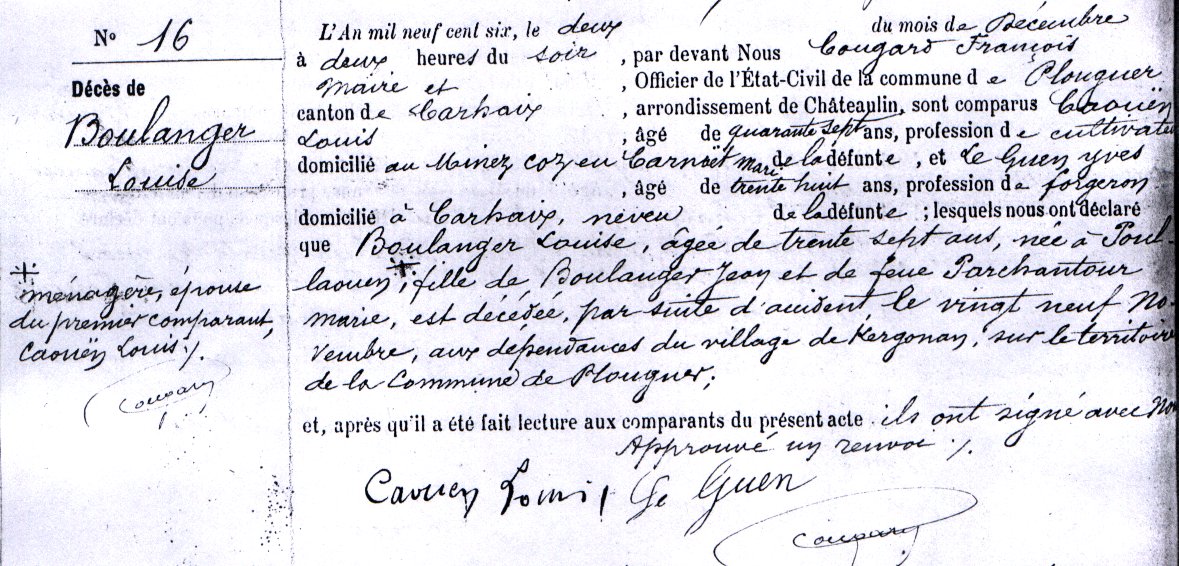 N° 16
Décès de
Boulanger
Louise
‡
ménagère, épouse
du premier comparant,
Caouën Louis ./.
L'An mil neuf cent six, le deux du mois de Décembre
à deux heures du soir, par devant Nous Cougard François
Maire et, Officier de l'État-Civil de la commune de Plouguer
canton de Carhaix, arrondissement de Châteaulin, sont comparus Caouën
Louis, âgé de quarante sept ans, profession de cultivateur
domicilié au Minez coz en Carnoët mari de la défunte, et Le Guen yves
, âgé de trente huit ans, profession de forgeron
domicilié à Carhaix, neveu de la défunte ; lesquels nous ont déclaré
que Boulanger Louise, âgée de trente sept ans, née à Poul-
laouen, ‡ fille de Boulanger Jean et de feue Parchantour
marie, est décédée, par suite d'accident, le vingt neuf No-
vembre, aux dépendances du village de Kergonan, sur le territoire
de la Commune de Plouguer;
et, après qu'il a été fait lecture aux comparants du présent acte ils ont signé avec No
Approuvé un renvoi ./.
Caouën Louis Le Guen
Cougard